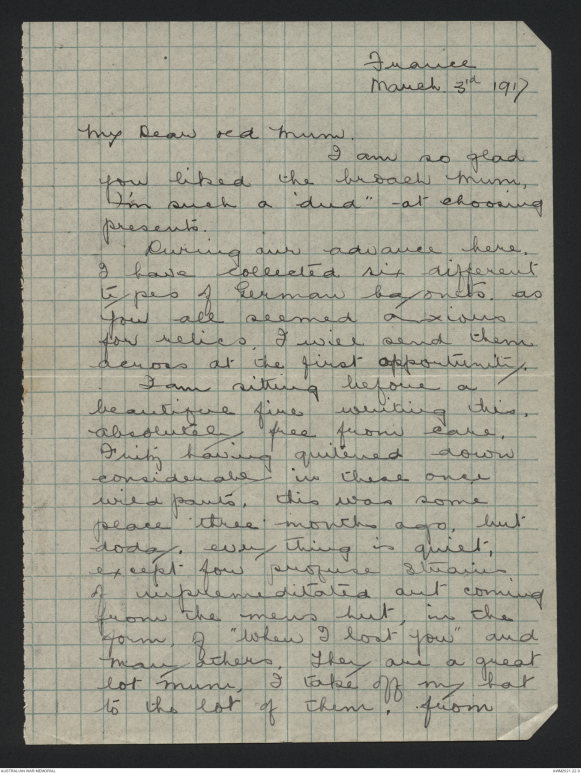 France
March 3rd 1917
My Dear old Mum.
I am so glad
you liked the broach Mum,
I'm such a "dud" - at choosing
presents.
During our advance here,
I have collected six different
types of German bayonets. as
you all seemed anxious
for relics, I will send them
across at the first opportunity.
I am sitting before a
beautiful fire writing this,
absolutely free from care,
Fritz having quitened down
considerable in these once
wild parts, this was some
place three months ago, but
today, every thing is quiet,
except for profuse strains
of unpremeditated art coming
from the mens hut, in the
form, of "When I lost you" and
many others. They are a great
lot Mum, I take off my hat
to the lot of them, from
AUSTRALIAN WAR MEMORIAL